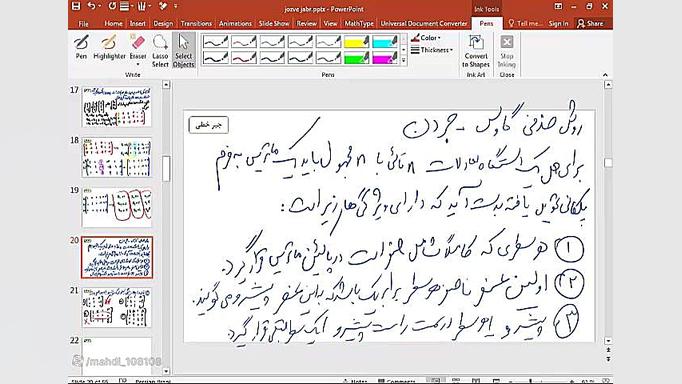 jozve jabr.pptx - PowerPoint
Ink Tools
File Home Insert Design Transitions Animations Slide Show Review View MathType Universal Document Converter Pens Tell me... Sign in Share
Pen Highlighter Eraser Lasso Select Select Objects
Color
Thickness
Convert to Shapes
Stop Inking
Write Pens Ink Art Close
17
18
19
20
21
22
جبر خطی
روش حذفی گاوس - جردن
برای حل یک دستگاه معادلات n تائی با n مجهول باید یک ماتریس به فرم
پلکانی تحویل یافته بدست آید که دارای ویژگی‌های زیر است:
۱ هر سطری که کاملاً شامل صفر است در پایین ماتریس قرار گیرد.
۲ اولین عضو ناصفر هر سطر برابر یک باشد که به این عضو پیشرو می‌گویند.
۳ پیشرو سطر در سمت راست پیشرو سطر قرار گیرد
@/mahdi_108108
Notes Comments